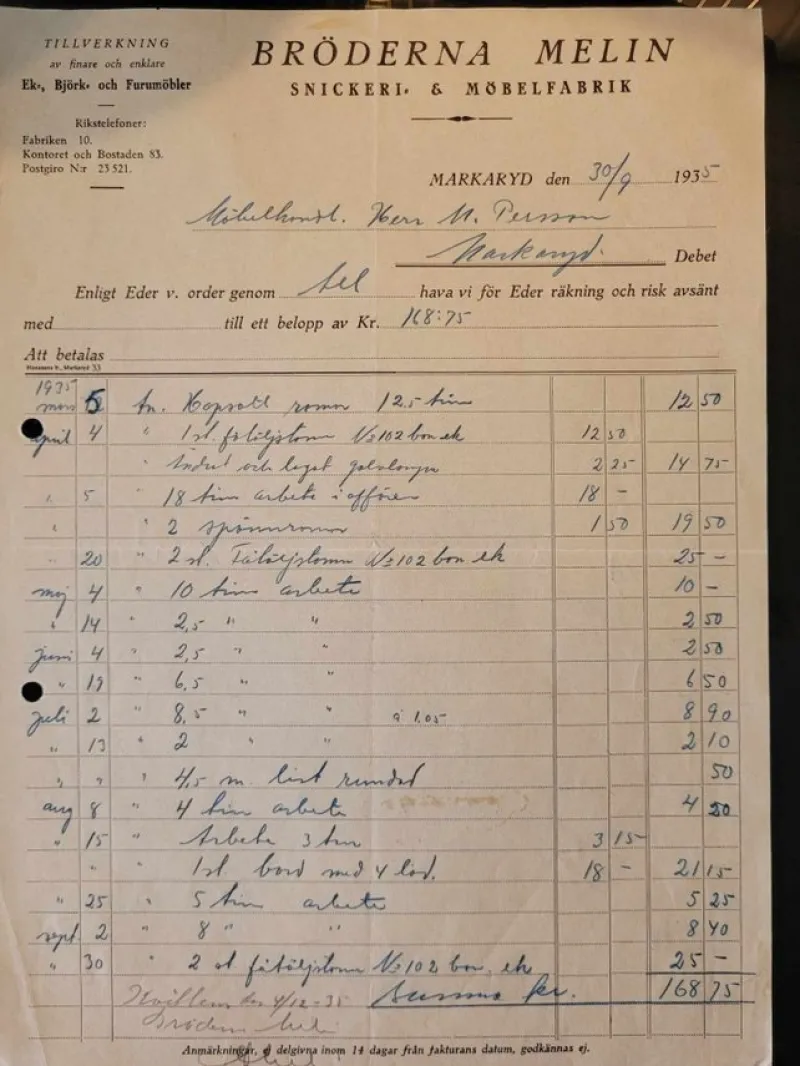 TILLVERKNING
av finare och enklare
Ek-, Björk- och Furumöbler
Rikstelefoner:
Fabriken 10.
Kontoret och Bostaden 83.
Postgiro N:r 23521.
BRÖDERNA MELIN
SNICKERI- & MÖBELFABRIK
MARKARYD den 30/9 1935
Möbelhandl. Herr M. Persson
Markaryd. Debet
Enligt Eder v. order genom tel hava vi för Eder räkning och risk avsänt
med till ett belopp av Kr. 168:75
Att betalas
1935
mars 5 12.5 tim 12 50
april 4 " 1 st. No 102 bon ek 12 50
" Ändrat och lagat 2 25 14 75
" 5 " 18 tim arbete i affären 18 -
" " 2 1 50 19 50
" 20 " 2 st. No 102 bon ek 25 -
maj 4 " 10 tim arbete 10 -
" 14 " 2,5 " " 2 50
juni 4 " 2,5 " " 2 50
" 19 " 6,5 " " 6 50
juli 2 " 8,5 " " à 1.05 8 90
" 13 " 2 " " 2 10
" " " 4,5 m. list rundat 50
aug 8 " 4 tim arbete 4 20
" 15 " Arbete 3 tim 3 15
" " 1 st. bord med 4 låd. 18 - 21 15
" 25 " 5 tim arbete 5 25
sept 2 " 8 " " 8 40
" 30 " 2 st No 102 bon. ek 25 -
den 4/12-35 Summa kr. 168 75
Anmärkningar, ej delgivna inom 14 dagar från fakturans datum, godkännas ej.